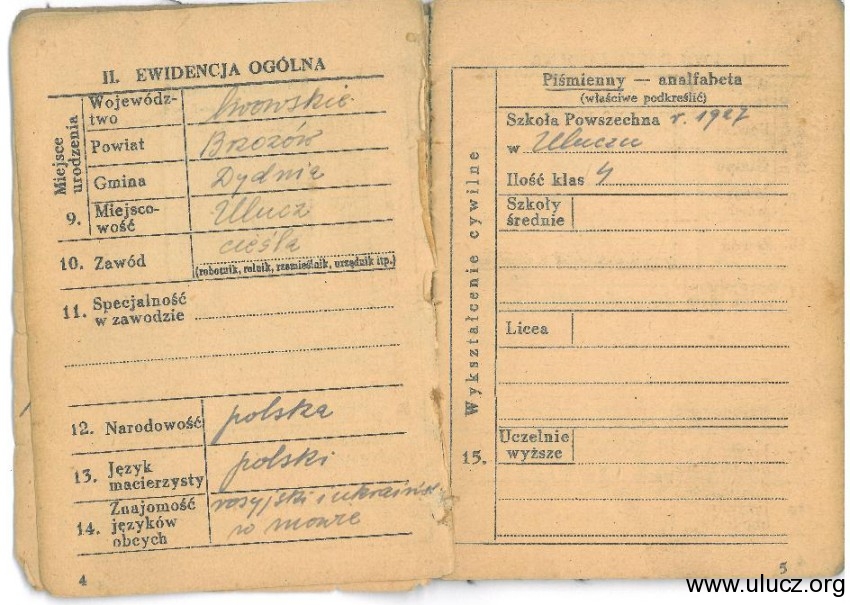 II. EWIDENCJA OGÓLNA
Miejsce urodzenia
Wojewódz-
two lwowskie
Powiat Brzozów
Gmina Dydnia
9. Miejsco-
wość Ulucz
10. Zawód cieśla
(robotnik, rolnik, rzemieślnik, urzędnik itp.)
11. Specjalność
w zawodzie
12. Narodowość polska
13. Język
macierzysty polski
Znajomość rosyjski i ukraiński
14. języków w mowie
obcych
4
Piśmienny — analfabeta
(właściwe podkreślić)
Szkoła Powszechna r. 1927
w Uluczu
Ilość klas 4
Szkoły
średnie
Licea
Wykształcenie cywilne
Uczelnie
15. wyższe
5
www.ulucz.org